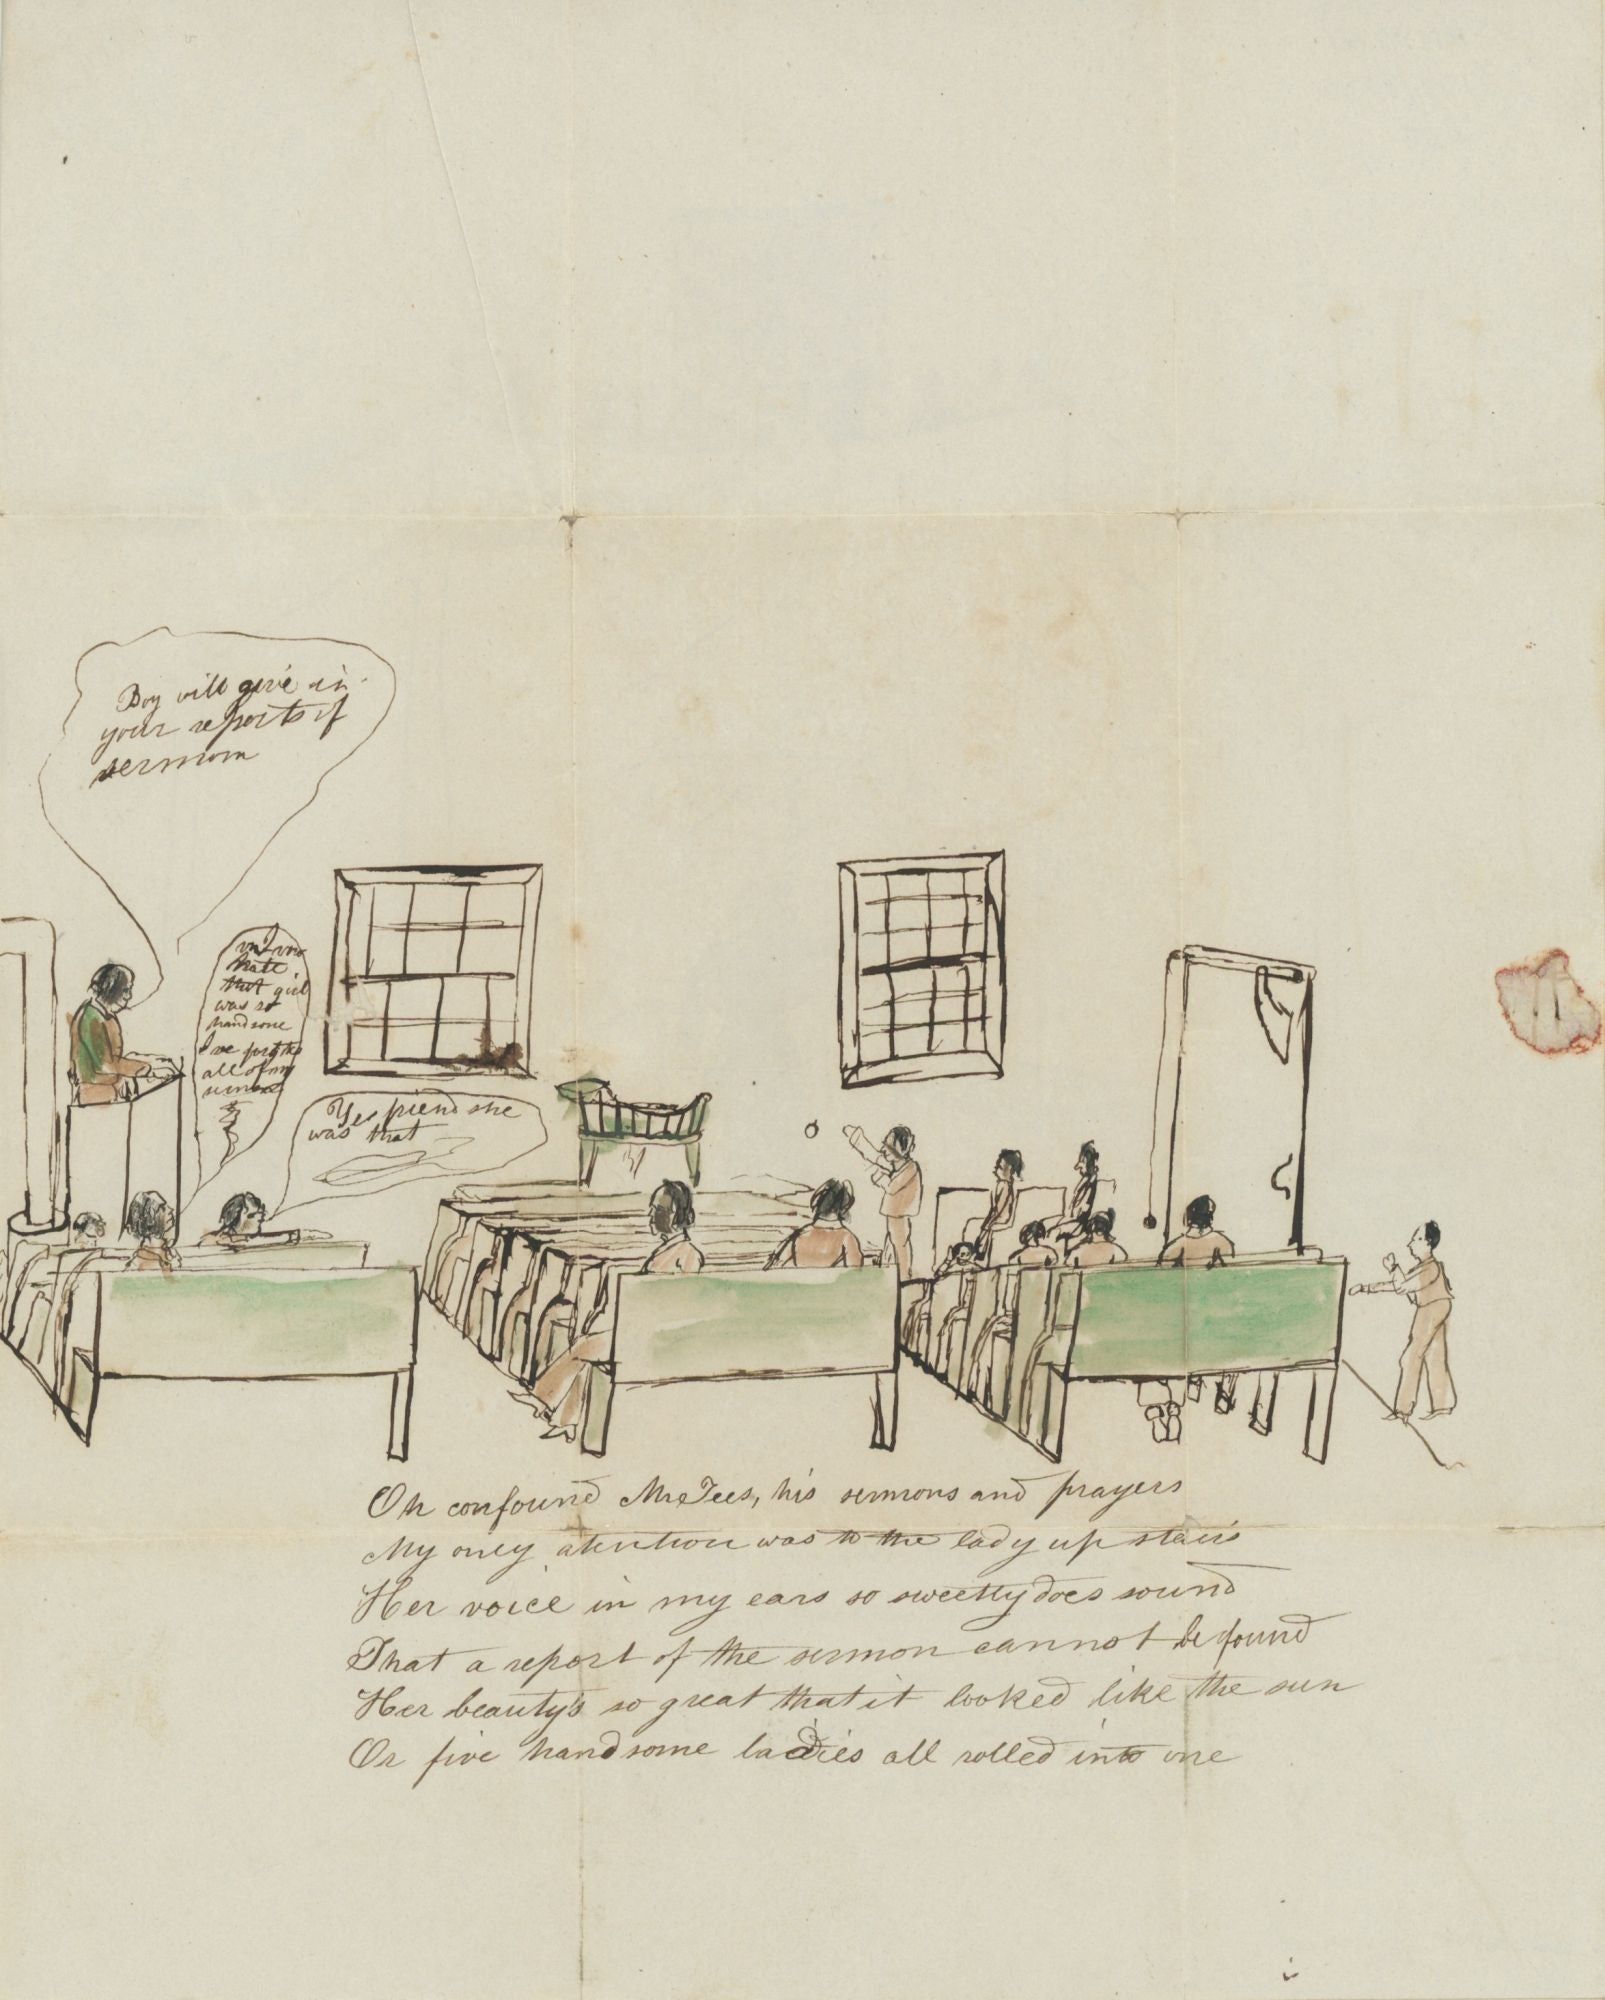 Boy will give in
your reports of
sermon
hate
that girl
was so
handsome
I've
all of my
Yes friend she
was that
Oh confound Mr Tees, his sermons and prayers
My only atention was to the lady up stairs
Her voice in my ears so sweetly does sound
That a report of the sermon cannot be found
Her beauty's so great that it looked like the sun
Or five handsome ladies all rolled into one